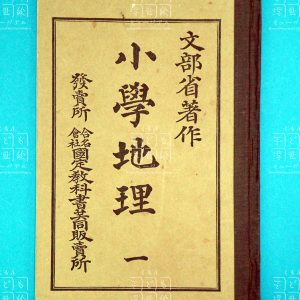 文部省著作
小學地理 一
發賣所 合名會社 國定教科書共同販賣所